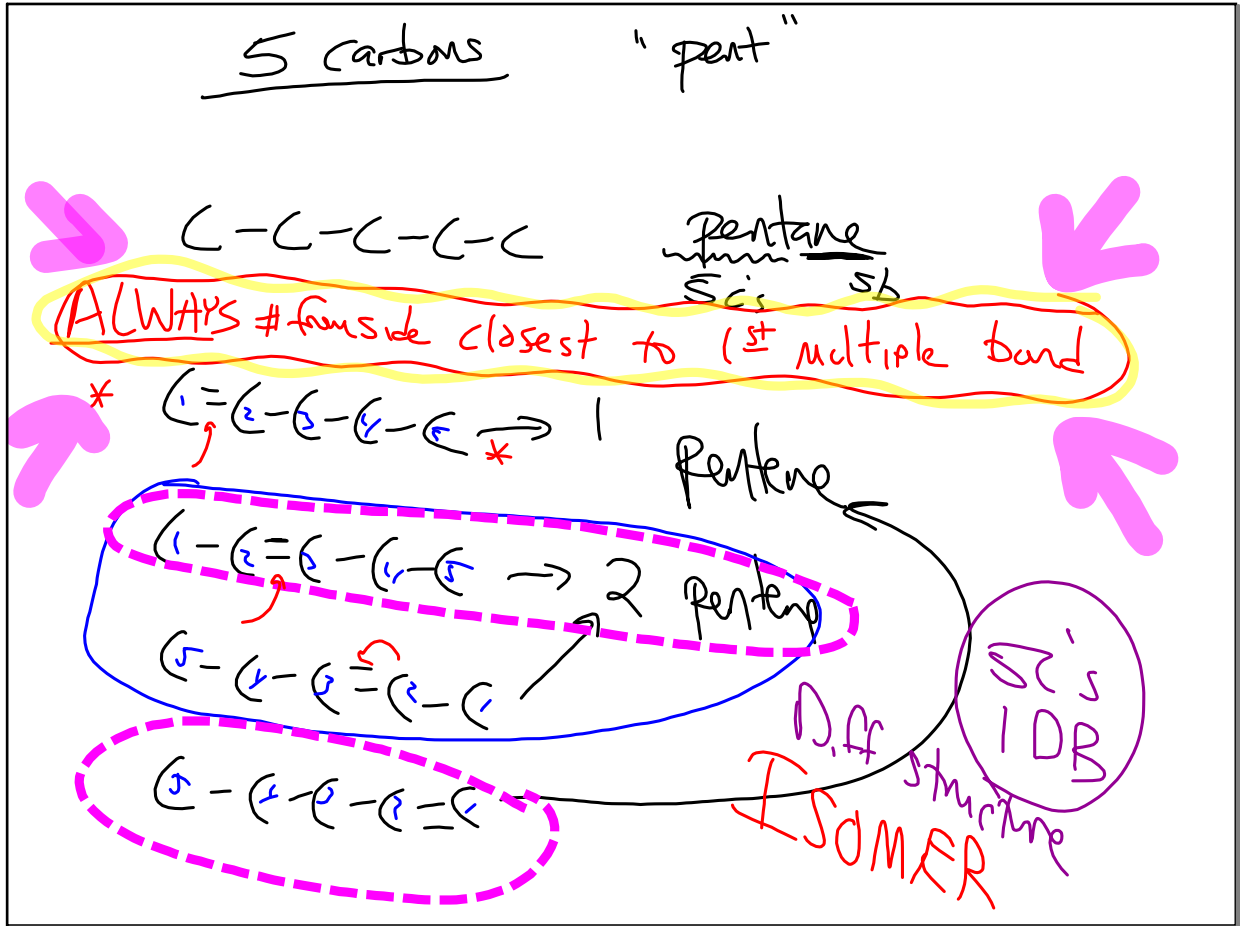 5 carbons "pent"
C-C-C-C-C pentane
5c's sb
ALWAYS # from side closest to 1st multiple bond
* C1=C2-C3-C4-C5 * → 1 Pentene
C1-C2=C3-C4-C5 → 2 Pentene
C5-C4-C3=C2-C1
5c's
1 DB
Diff structure
C5-C4-C3-C2=C1
ISOMER